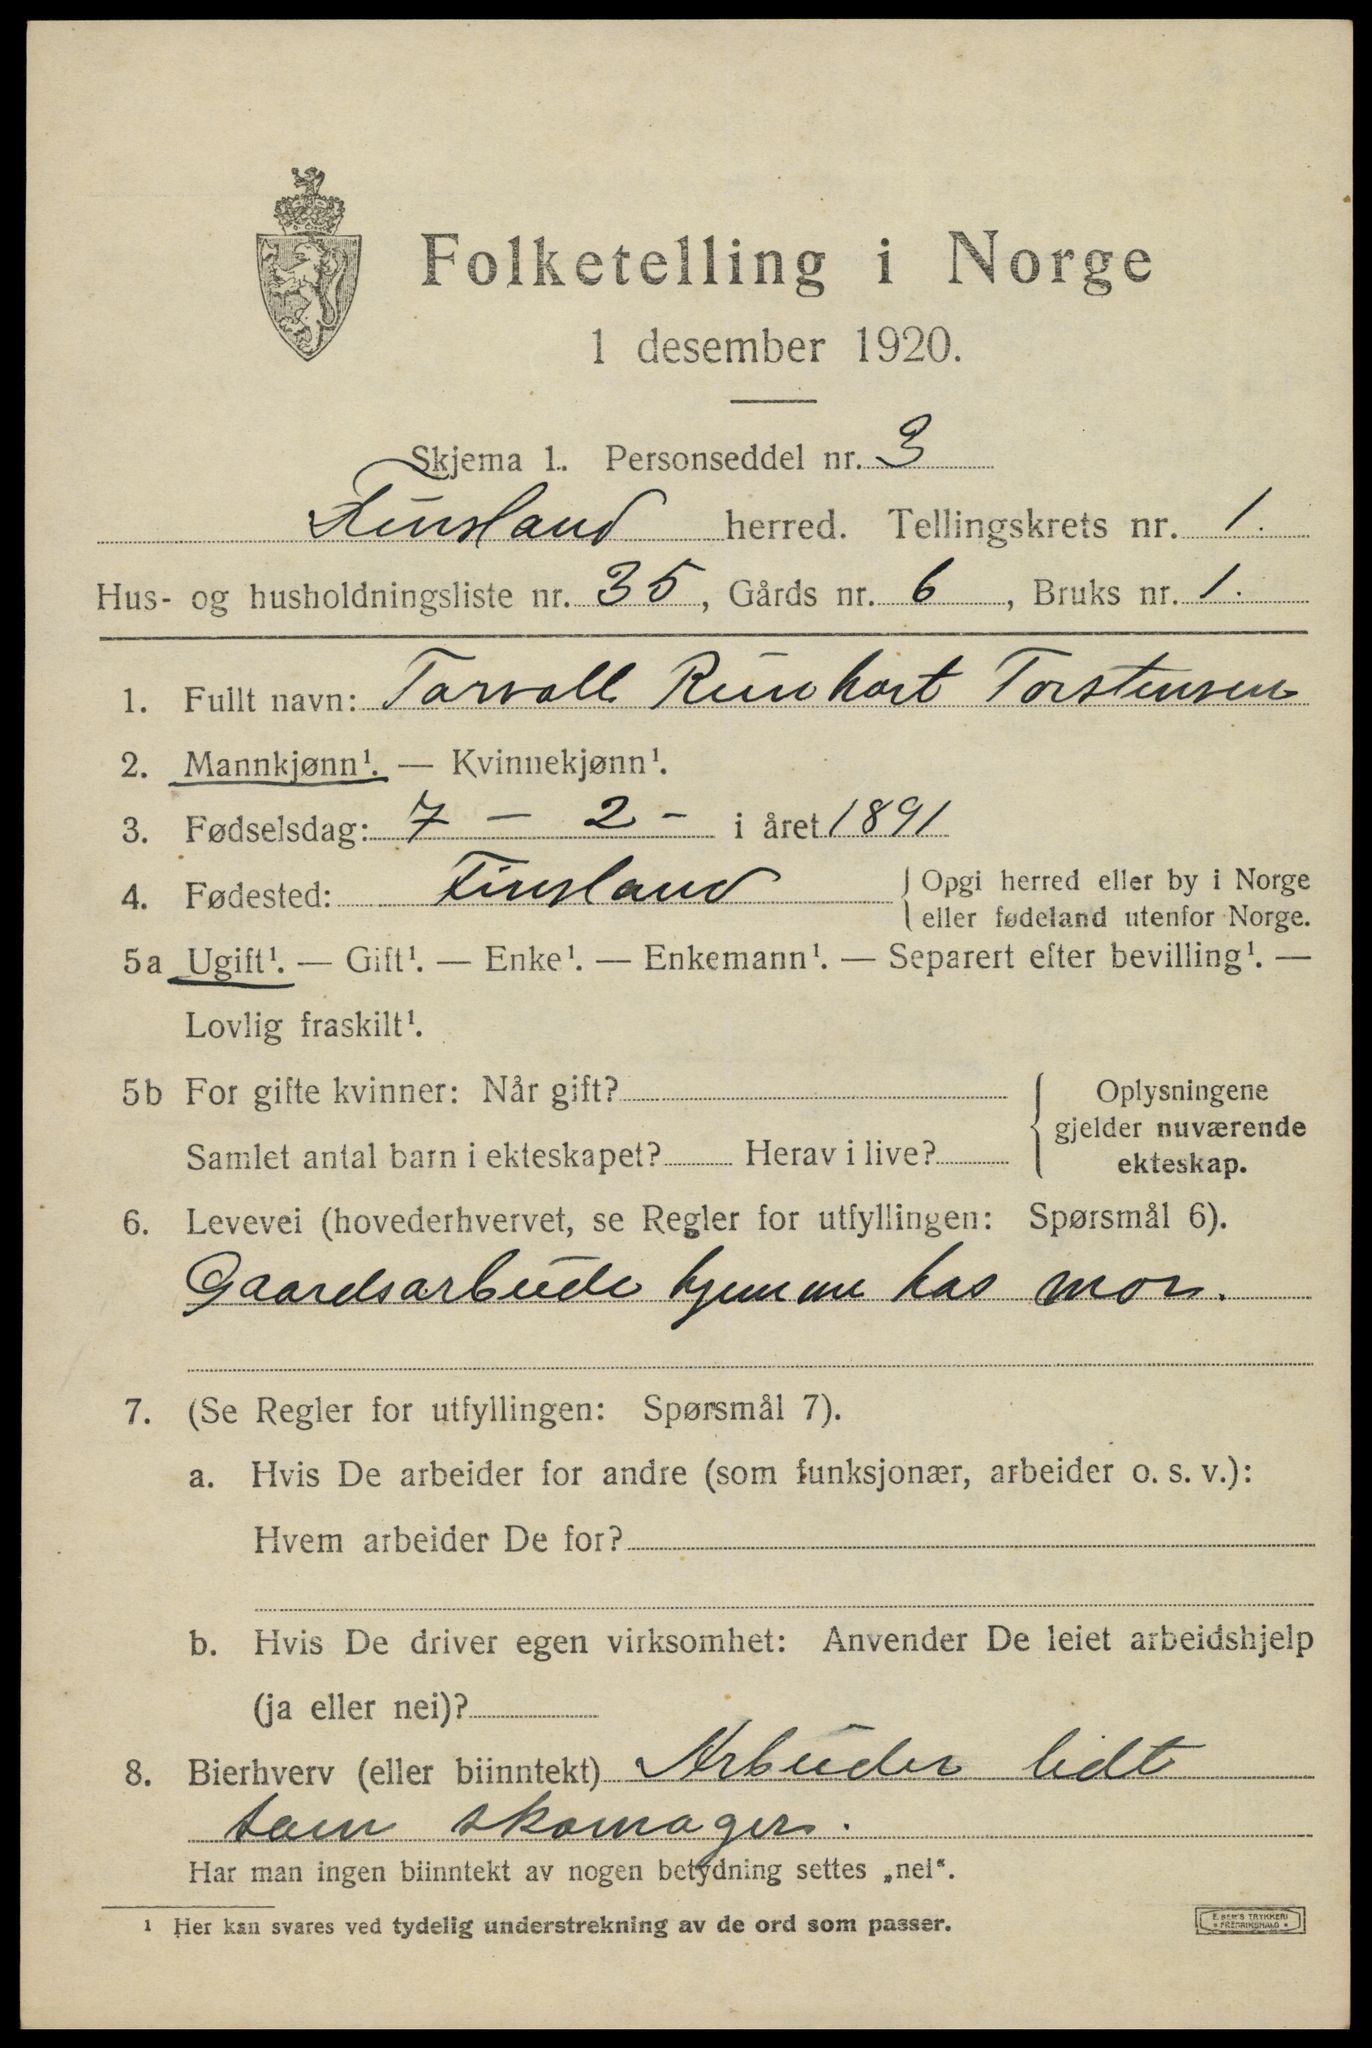 Folketelling i Norge
1 desember 1920.
Skjema 1. Personseddel nr. 3
Finsland herred. Tellingskrets nr. 1.
Hus- og husholdningsliste nr. 35, Gårds nr. 6, Bruks nr. 1.
1. Fullt navn: Torvall Reinhart Torstensen
2. Mannkjønn¹. — Kvinnekjønn¹.
3. Fødselsdag: 7 - 2 - i året 1891
4. Fødested: Finsland { Opgi herred eller by i Norge
eller fødeland utenfor Norge.
5a Ugift¹. — Gift¹. — Enke¹. — Enkemann¹. — Separert efter bevilling¹. —
Lovlig fraskilt¹.
5b For gifte kvinner: Når gift? { Oplysningene
gjelder nuværende
Samlet antal barn i ekteskapet? Herav i live? ekteskap.
6. Levevei (hovederhvervet, se Regler for utfyllingen: Spørsmål 6).
Gaardsarbeide hjemme hos mor.
7. (Se Regler for utfyllingen: Spørsmål 7).
a. Hvis De arbeider for andre (som funksjonær, arbeider o. s. v.):
Hvem arbeider De for?
b. Hvis De driver egen virksomhet: Anvender De leiet arbeidshjelp
(ja eller nei)?
8. Bierhverv (eller biinntekt) Arbeider lidt
som skomager.
Har man ingen biinntekt av nogen betydning settes „nei“.
¹ Her kan svares ved tydelig understrekning av de ord som passer.
E. SEM'S TRYKKERI
* FREDRIKSHALD *